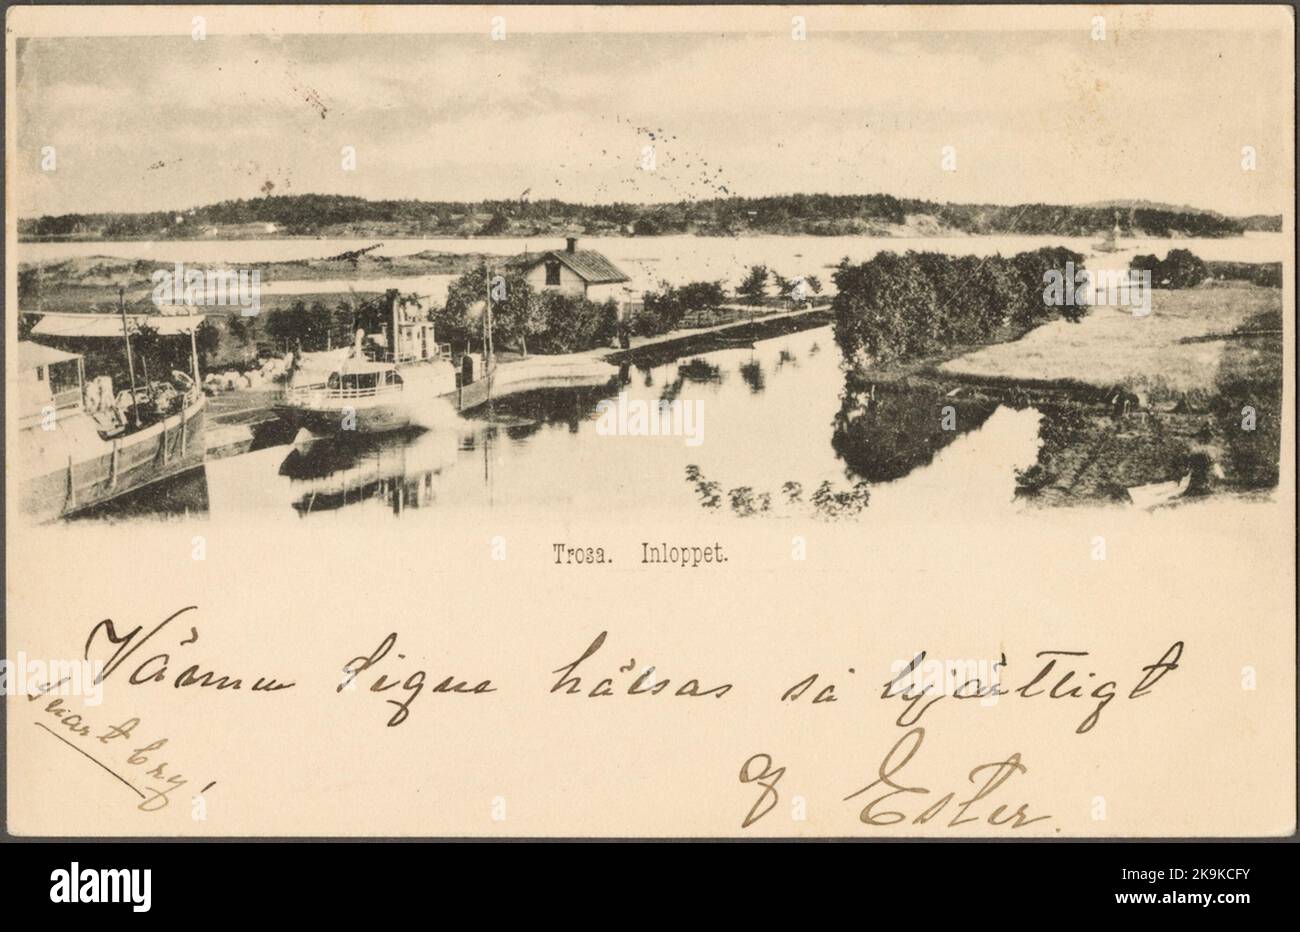 Trosa. Inloppet.
Vännen Signe hälsas så hjärtligt
af Ester.
Snart bry!
alamy
Image ID: 2K9KCFY
www.alamy.com